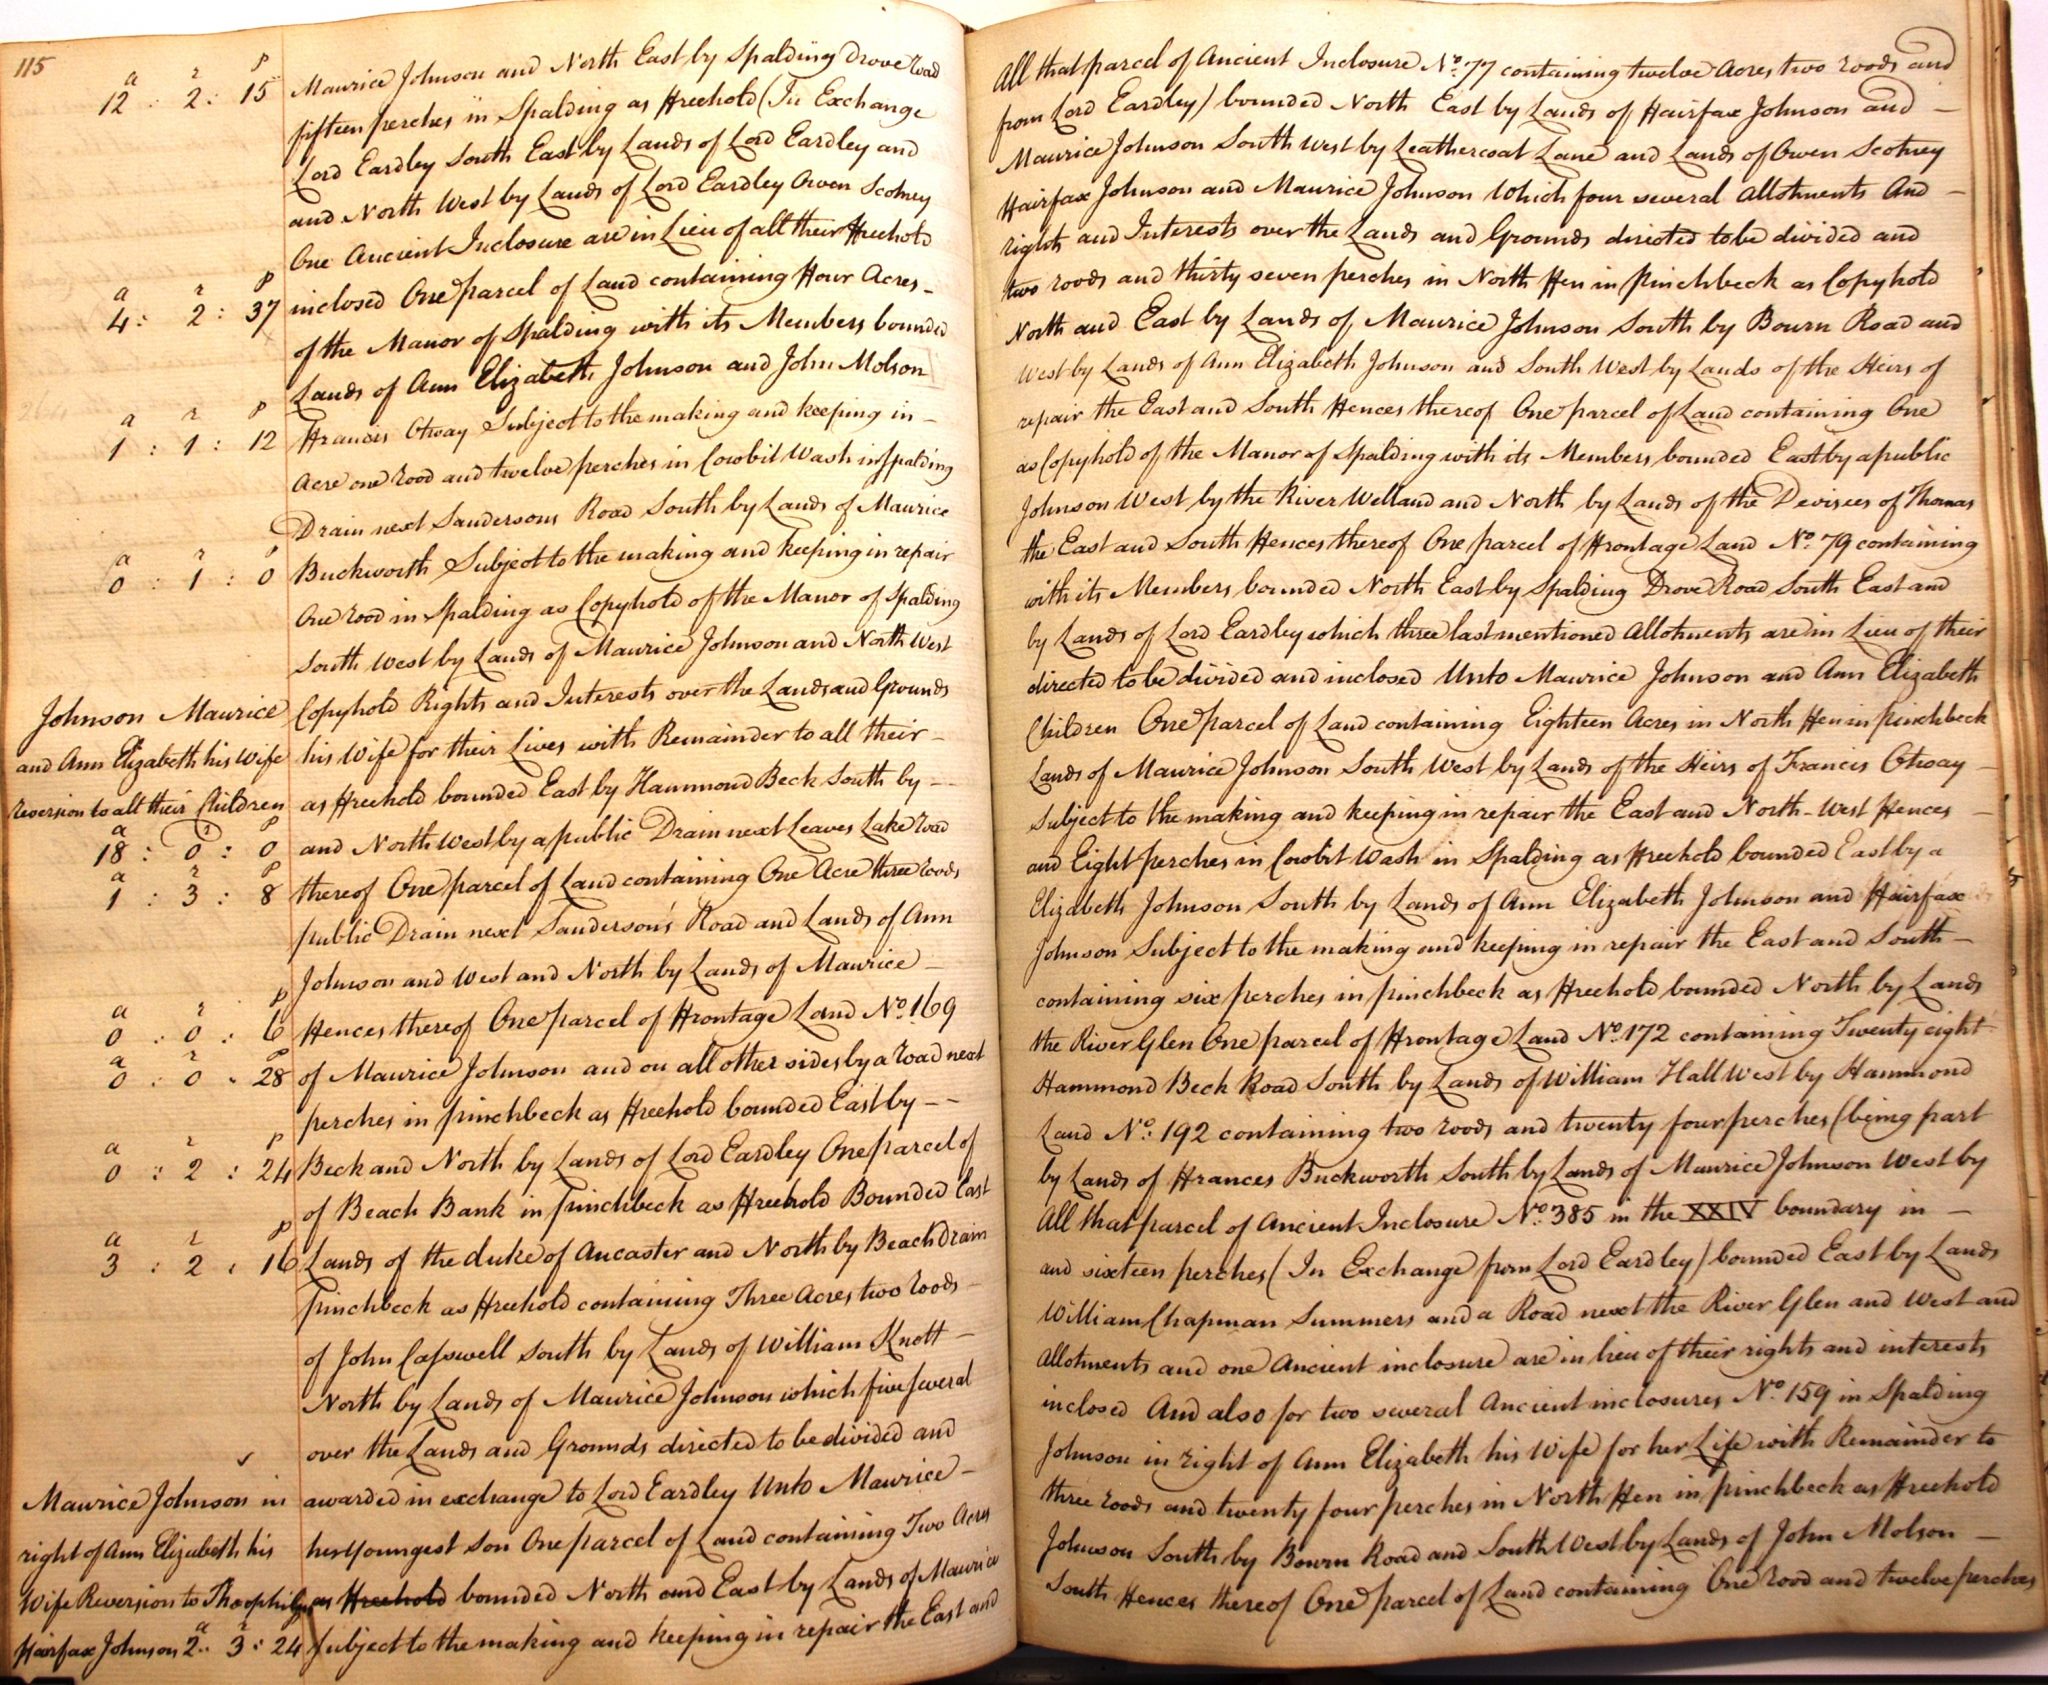 115
a r p
12 : 2 : 15
Maurice Johnson and North East by Spalding Drove Road
All that parcel of Ancient Inclosure No. 77 containing twelve Acres two roods and
fifteen perches in Spalding as Freehold (In Exchange
from Lord Eardley) bounded North East by Lands of Fairfax Johnson and —
Lord Eardley South East by Lands of Lord Eardley and
Maurice Johnson South West by Leathercoat Lane and Lands of Owen Scotney
and North West by Lands of Lord Eardley Owen Scotney
Fairfax Johnson and Maurice Johnson Which four several Allotments And —
One Ancient Inclosure are in Lieu of all their Freehold
rights and Interests over the Lands and Grounds directed to be divided and
a r p
4 : 2 : 37
inclosed One parcel of Land containing Four Acres —
two roods and thirty seven perches in North Fen in Pinchbeck as Copyhold
of the Manor of Spalding with its Members bounded
North and East by Lands of Maurice Johnson South by Bourn Road and
Lands of Ann Elizabeth Johnson and John Molson
West by Lands of Ann Elizabeth Johnson and South West by Lands of the Heirs of
a r p
1 : 1 : 12
Francis Otway Subject to the making and keeping in —
repair the East and South Fences thereof One parcel of Land containing One
Acre one rood and twelve perches in Cowbit Wash in Spalding
as Copyhold of the Manor of Spalding with its Members bounded East by a public
Drain next Sandersons Road South by Lands of Maurice
Johnson West by the River Welland and North by Lands of the Devisees of Thomas
a r p
0 : 1 : 0
Buckworth Subject to the making and keeping in repair
the East and South Fences thereof One parcel of Frontage Land No. 79 containing
One rood in Spalding as Copyhold of the Manor of Spalding
with its Members bounded North East by Spalding Drove Road South East and
South West by Lands of Maurice Johnson and North West
by Lands of Lord Eardley which three last mentioned Allotments are in Lieu of their
Johnson Maurice
Copyhold Rights and Interests over the Lands and Grounds
directed to be divided and inclosed Unto Maurice Johnson and Ann Elizabeth
and Ann Elizabeth his Wife
his Wife for their Lives with Remainder to all their —
Children One parcel of Land containing Eighteen Acres in North Fen in Pinchbeck
reversion to all their Children
as Freehold bounded East by Hammond Beck South by — —
Lands of Maurice Johnson South West by Lands of the Heirs of Francis Otway —
a r p
18 : 0 : 0
and North West by a public Drain next Leaves Lake road
Subject to the making and keeping in repair the East and North-West Fences —
a r p
1 : 3 : 8
thereof One parcel of Land containing One Acre three roods
and Eight perches in Cowbit Wash in Spalding as Freehold bounded East by a
public Drain next Sanderson's Road and Lands of Ann
Elizabeth Johnson South by Lands of Ann Elizabeth Johnson and Fairfax
Johnson and West and North by Lands of Maurice —
Johnson Subject to the making and keeping in repair the East and South —
a r p
0 : 0 : 6
Fences thereof One parcel of Frontage Land No. 169
containing six perches in Pinchbeck as Freehold bounded North by Lands
a r p
0 : 0 : 28
of Maurice Johnson and on all other sides by a road next
the River Glen One parcel of Frontage Land No. 172 containing Twenty eight
perches in Pinchbeck as Freehold bounded East by — —
Hammond Beck Road South by Lands of William Hall West by Hammond
a r p
0 : 2 : 24
Beck and North by Lands of Lord Eardley One parcel of
Land No. 192 containing two roods and twenty four perches (being part
of Beach Bank in Pinchbeck as Freehold Bounded East
by Lands of Frances Buckworth South by Lands of Maurice Johnson West by
a r p
3 : 2 : 16
Lands of the duke of Ancaster and North by Beach Drain
All that parcel of Ancient Inclosure No. 385 in the XXIV boundary in —
Pinchbeck as Freehold containing Three Acres two roods —
and sixteen perches (In Exchange from Lord Eardley) bounded East by Lands
of John Caswell South by Lands of William Knott —
William Chapman Summers and a Road next the River Glen and West and
North by Lands of Maurice Johnson which five several
Allotments and one Ancient inclosure are in lieu of their rights and interests
over the Lands and Grounds directed to be divided and
inclosed And also for two several Ancient inclosures No. 159 in Spalding
Maurice Johnson in
awarded in exchange to Lord Eardley Unto Maurice —
Johnson in right of Ann Elizabeth his Wife for her Life with Remainder to
right of Ann Elizabeth his
her youngest Son One parcel of Land containing Two Acres
three roods and twenty four perches in North Fen in Pinchbeck as Freehold
Wife Reversion to Theophilus
as Freehold bounded North and East by Lands of Maurice
Johnson South by Bourn Road and South West by Lands of John Molson —
a r
Fairfax Johnson 2 : 3 : 24
Subject to the making and keeping in repair the East and
South Fences thereof One parcel of Land containing One rood and twelve perches